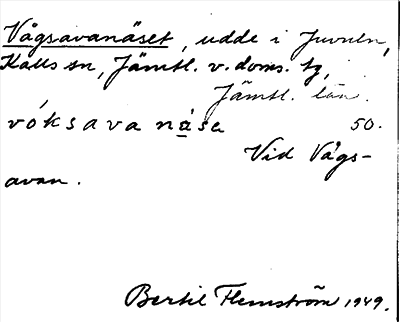 Vågsavanäset, udde i Juvuln,
Kalls sn, Jämtl. v. doms. tg,
Jämtl. län.
vóksava nàse 50.
Vid Vågs-
avan.
Bertil Flemström 1949.